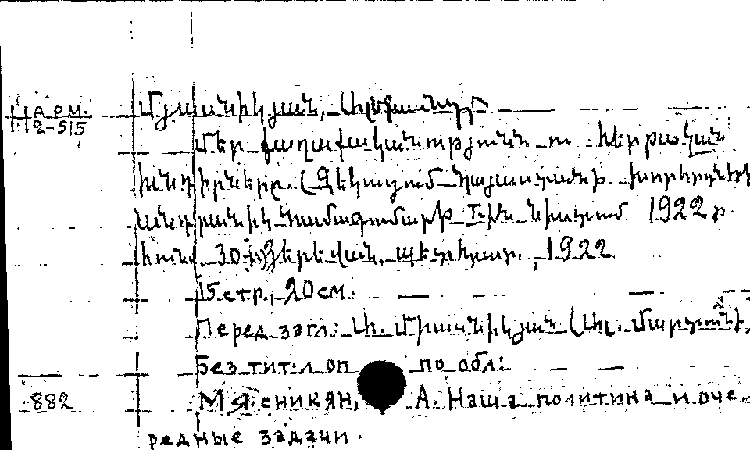 Арм. Մյասնիկյան, Ալեքսանդր
2-515
Մեր քաղաքականությունն ու հերթական
խնդիրները. (Զեկուցում Հայաստանի խորհրդների
1922 թ.
հունվ. 30-ին Երևան, պետհրատ., 1922.
15 стр., 20 см.
Перед загл.: Ա. Մյասնիկյան (Ալ. Մարտունի).
Без тит. л. оп по обл.
882 Мясникян, А. Наша политика и оче-
редные задачи.